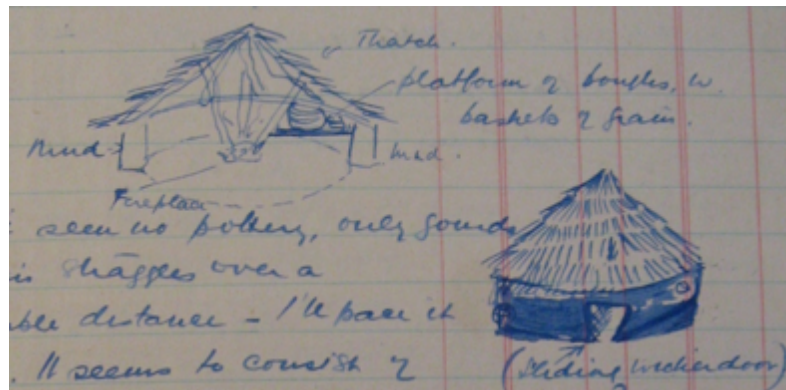 Thatch.
platform of boughs, w.
baskets of grain.
Mud
Mud.
Fireplace
seen no pottery, only gourds
is straggles over a
ble distance - I'll pace it
. It seems to consist of
(Sliding wickerdoor)